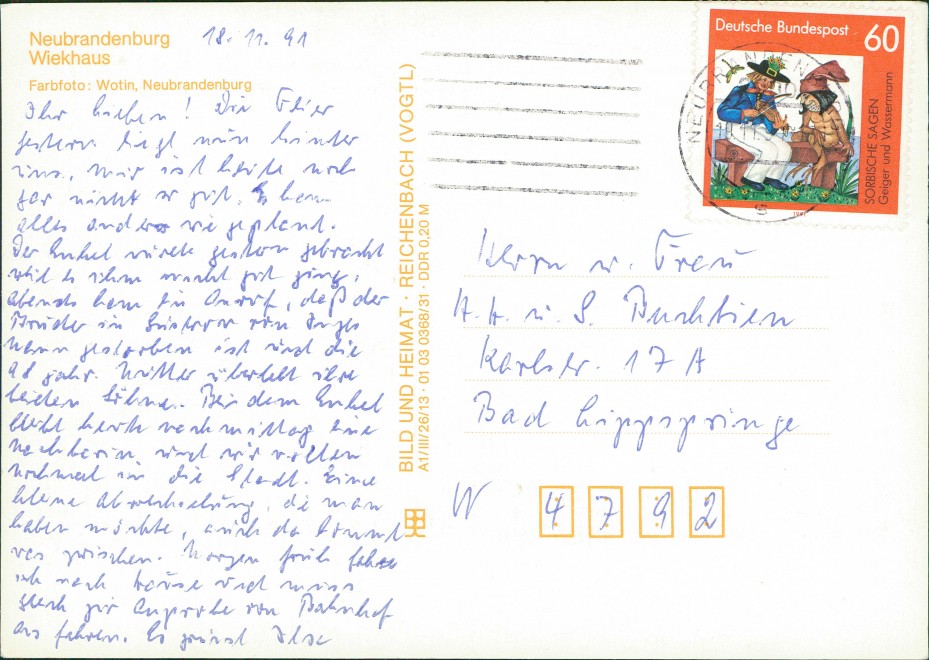 Neubrandenburg
Wiekhaus
18.11.91
Farbfoto: Wotin, Neubrandenburg
Ihr Lieben! Die Feier
gestern liegt nun hinter
uns, mir ist heute noch
gar nicht so gut, Es kam
alles anders wie geplant.
Der Enkel wurde gestern gebracht
weil es ihm nicht gut ging,
abends kam ein Anruf, daß der
Bruder in Güstrow von
Mann gestorben ist und die
98 jähr. Mutter überlebt ihre
beiden Söhne. Bei dem Enkel
bleibt heute nachmittag eine
Nachbarin und wir wollen
nochmal in die Stadt. Eine
kleine Abwechselung, die man
haben möchte, auch da kommt
was zwischen. Morgen früh fahre
ich nach Hause und muss
gleich zur Anprobe vom Bahnhof
aus fahren. Es grüßt Ilse
BILD UND HEIMAT · REICHENBACH (VOGTL)
A1/III/26/13 · 01 03 0368/31 · DDR 0,20 M
Deutsche Bundespost 60
SORBISCHE SAGEN
Geiger und Wassermann
1991
NEUBRANDENB
Herrn u. Frau
H.H. u. S. Buchtien
Karlstr. 17 A
Bad Lippspringe
W 4792